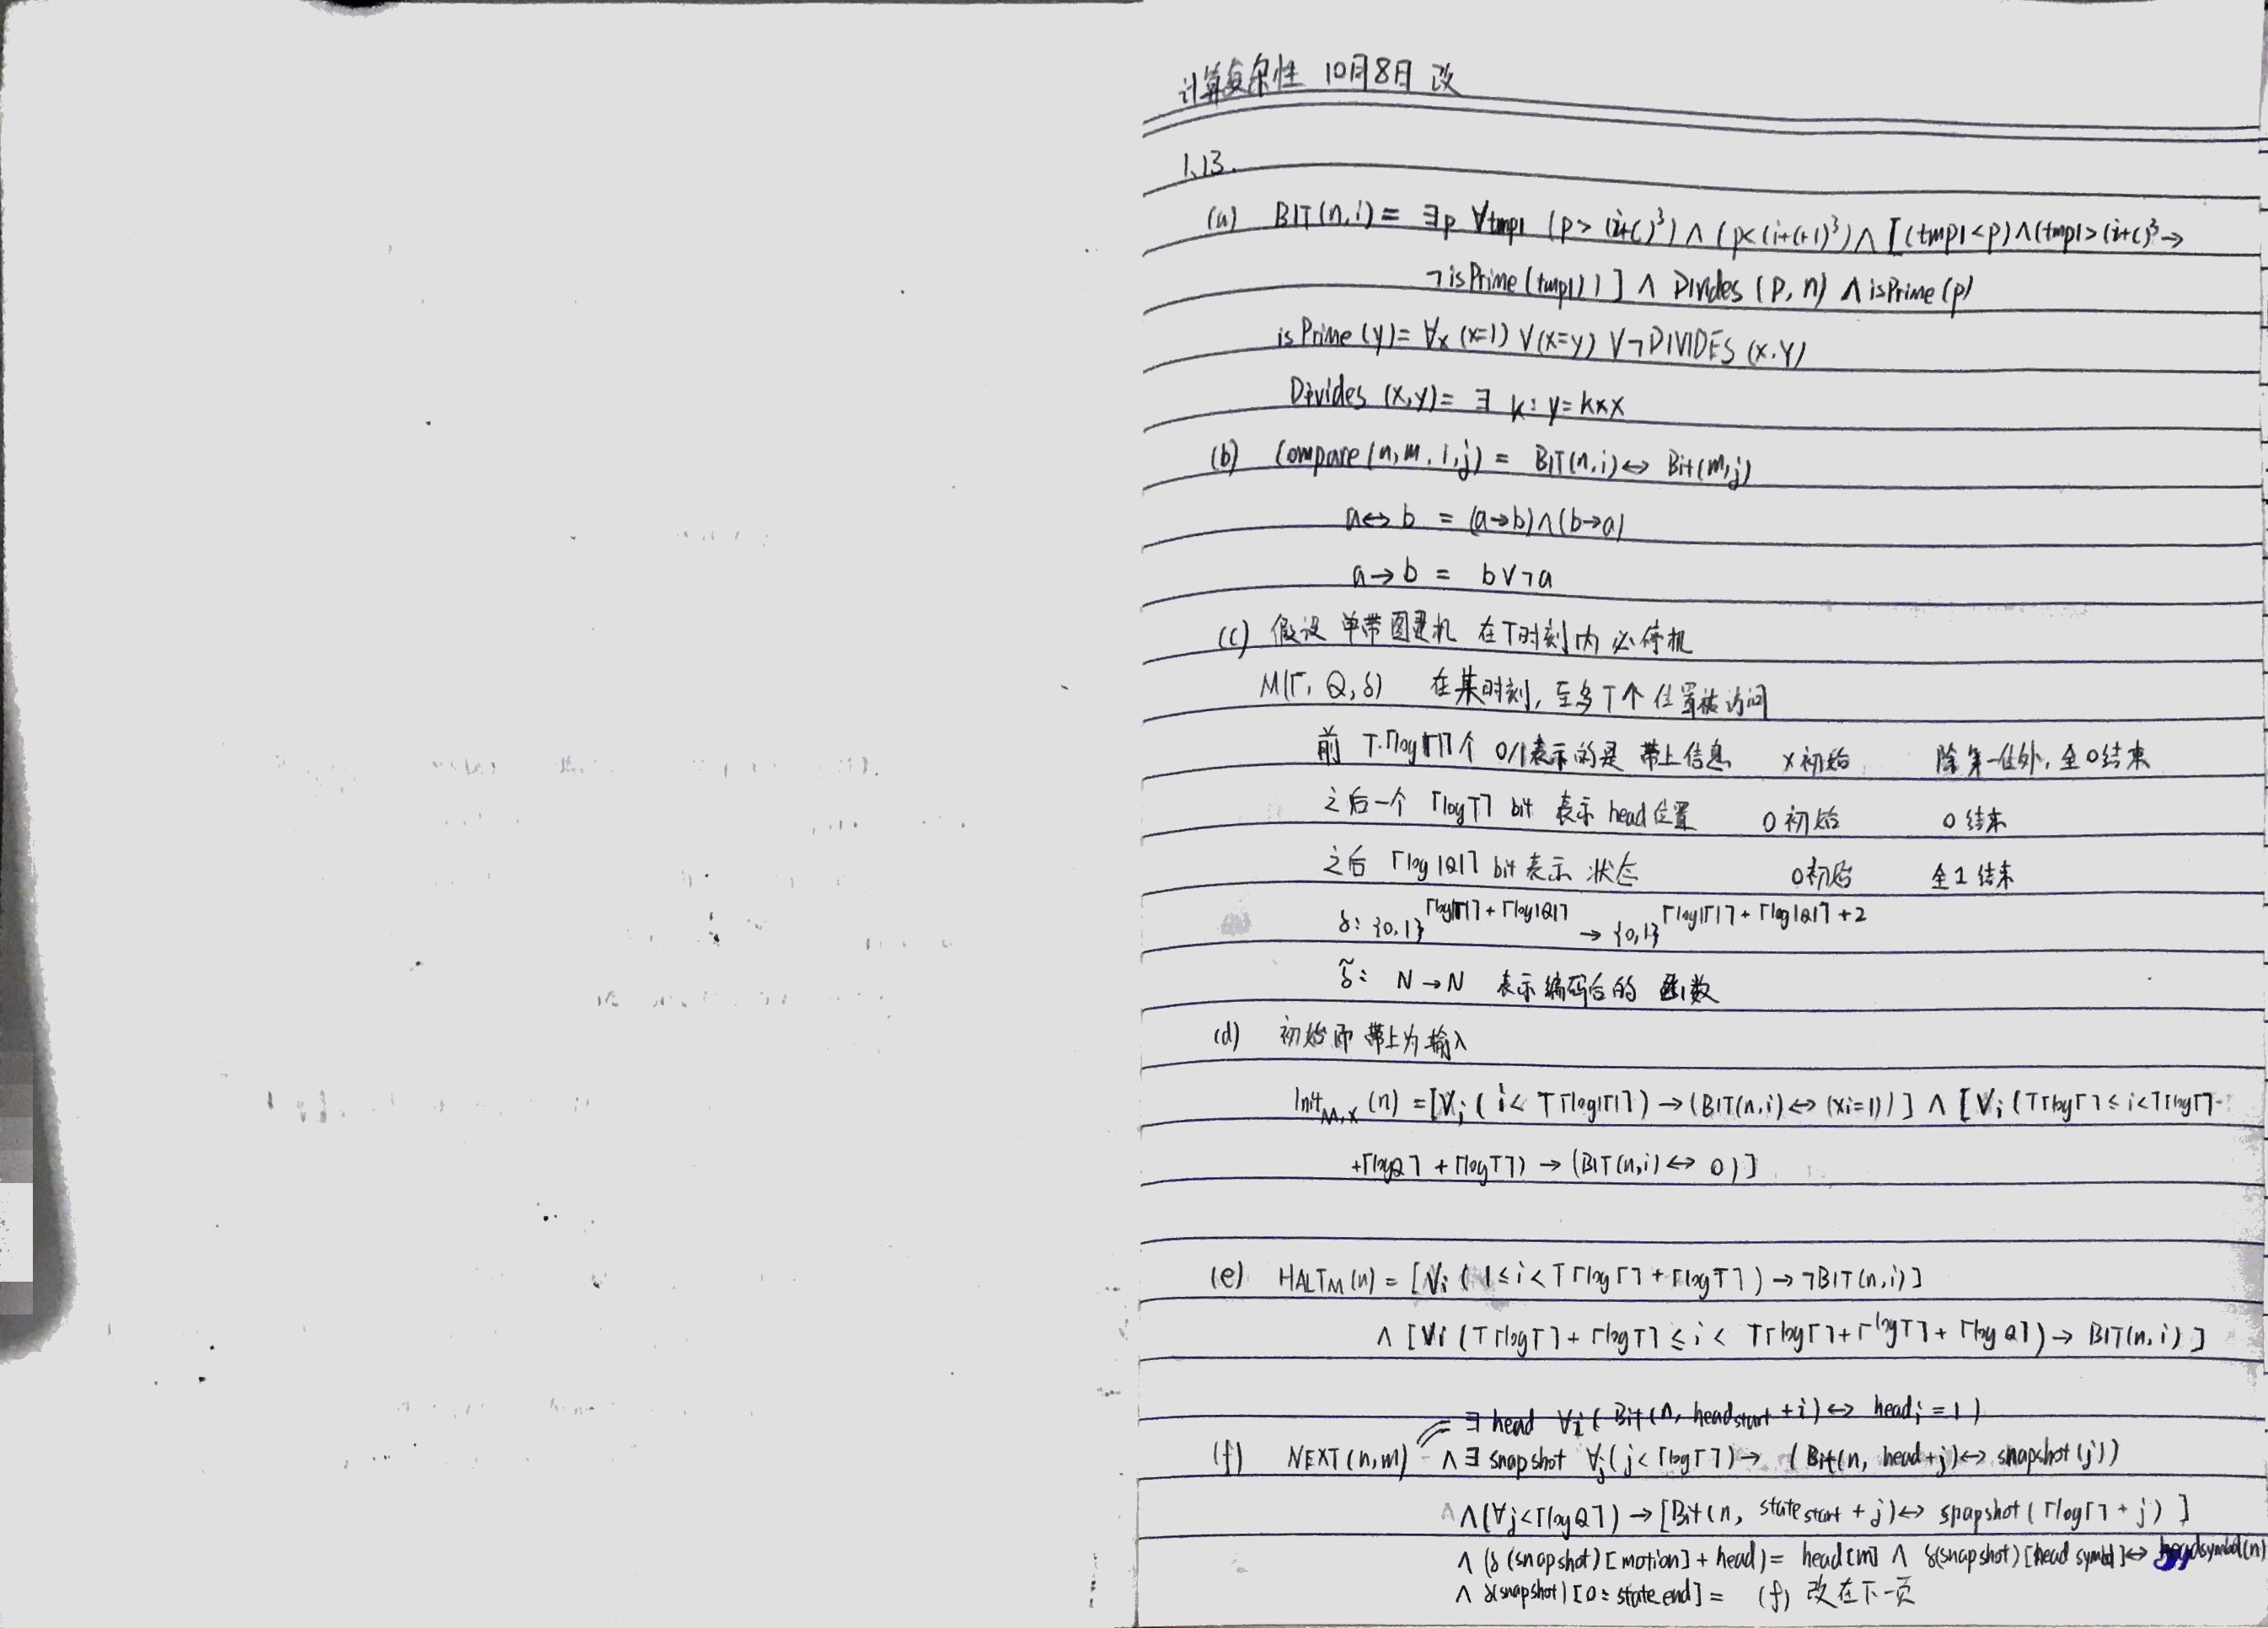 计算复杂性 10月8日 改
1.13.
(a) BIT(n,i) = ∃p ∀tmp1 (p > (i+c)³) ∧ (p<(i+c+1)³) ∧ [(tmp1<p)∧(tmp1>(i+c)³→
¬isPrime(tmp1))] ∧ Divides (p, n) ∧ isPrime(p)
isPrime(y)= ∀x (x=1) ∨(x=y) ∨¬DIVIDES (x,y)
Divides (x,y)= ∃ k: y=k×x
(b) Compare(n,m,i,j) = BIT(n,i)↔ Bit(m,j)
a↔b = (a→b)∧(b→a)
a→b = b∨¬a
(c) 假设 单带图灵机 在T时刻内 必停机
M(Γ, Q, δ) 在某时刻, 至多T个 位置被访问
前 T·⌈log|Γ|⌉个 0/1表示的是 带上信息 x初始 除第一位外, 全0结束
之后一个 ⌈logT⌉ bit 表示 head位置 0初始 0结束
之后 ⌈log|Q|⌉ bit表示 状态 0初始 全1结束
δ: {0,1}^⌈log|Γ|⌉+⌈log|Q|⌉ → {0,1}^⌈log|Γ|⌉+⌈log|Q|⌉+2
δ̃: N→N 表示编码后的 函数
(d) 初始即 带上为输入
Init_M,x (n) =[∀i ( i< T⌈log|Γ|⌉) →(BIT(n,i)↔(xi=1))] ∧ [∀i (T⌈logΓ⌉≤i<T⌈logΓ⌉
+⌈logQ⌉ +⌈logT⌉) → (BIT(n,i)↔ 0)]
(e) HALT_M(n) = [∀i ( 1≤i<T⌈logΓ⌉+⌈logT⌉) →¬BIT(n,i)]
∧ [∀i (T⌈logΓ⌉+⌈logT⌉ ≤ i < T⌈logΓ⌉+⌈logT⌉+⌈logQ⌉) → BIT(n,i)]
= ∃ head ∀i ( Bit(n, head_start +i)↔ head_i =1)
(f) NEXT(n,m) ∧ ∃ snapshot ∀j( j<⌈logΓ⌉)→ (Bit(n, head+j)↔ snapshot(j))
∧(∀j<⌈logQ⌉) →[Bit(n, state_start + j)↔ spapshot(⌈logΓ⌉+j)]
∧ (δ(snapshot)[motion]+head)= head[m] ∧ δ(snapshot)[head symbol]↔ headsymbol(n)
∧ δ(snapshot)[0:state_end] = (f) 改在下一页